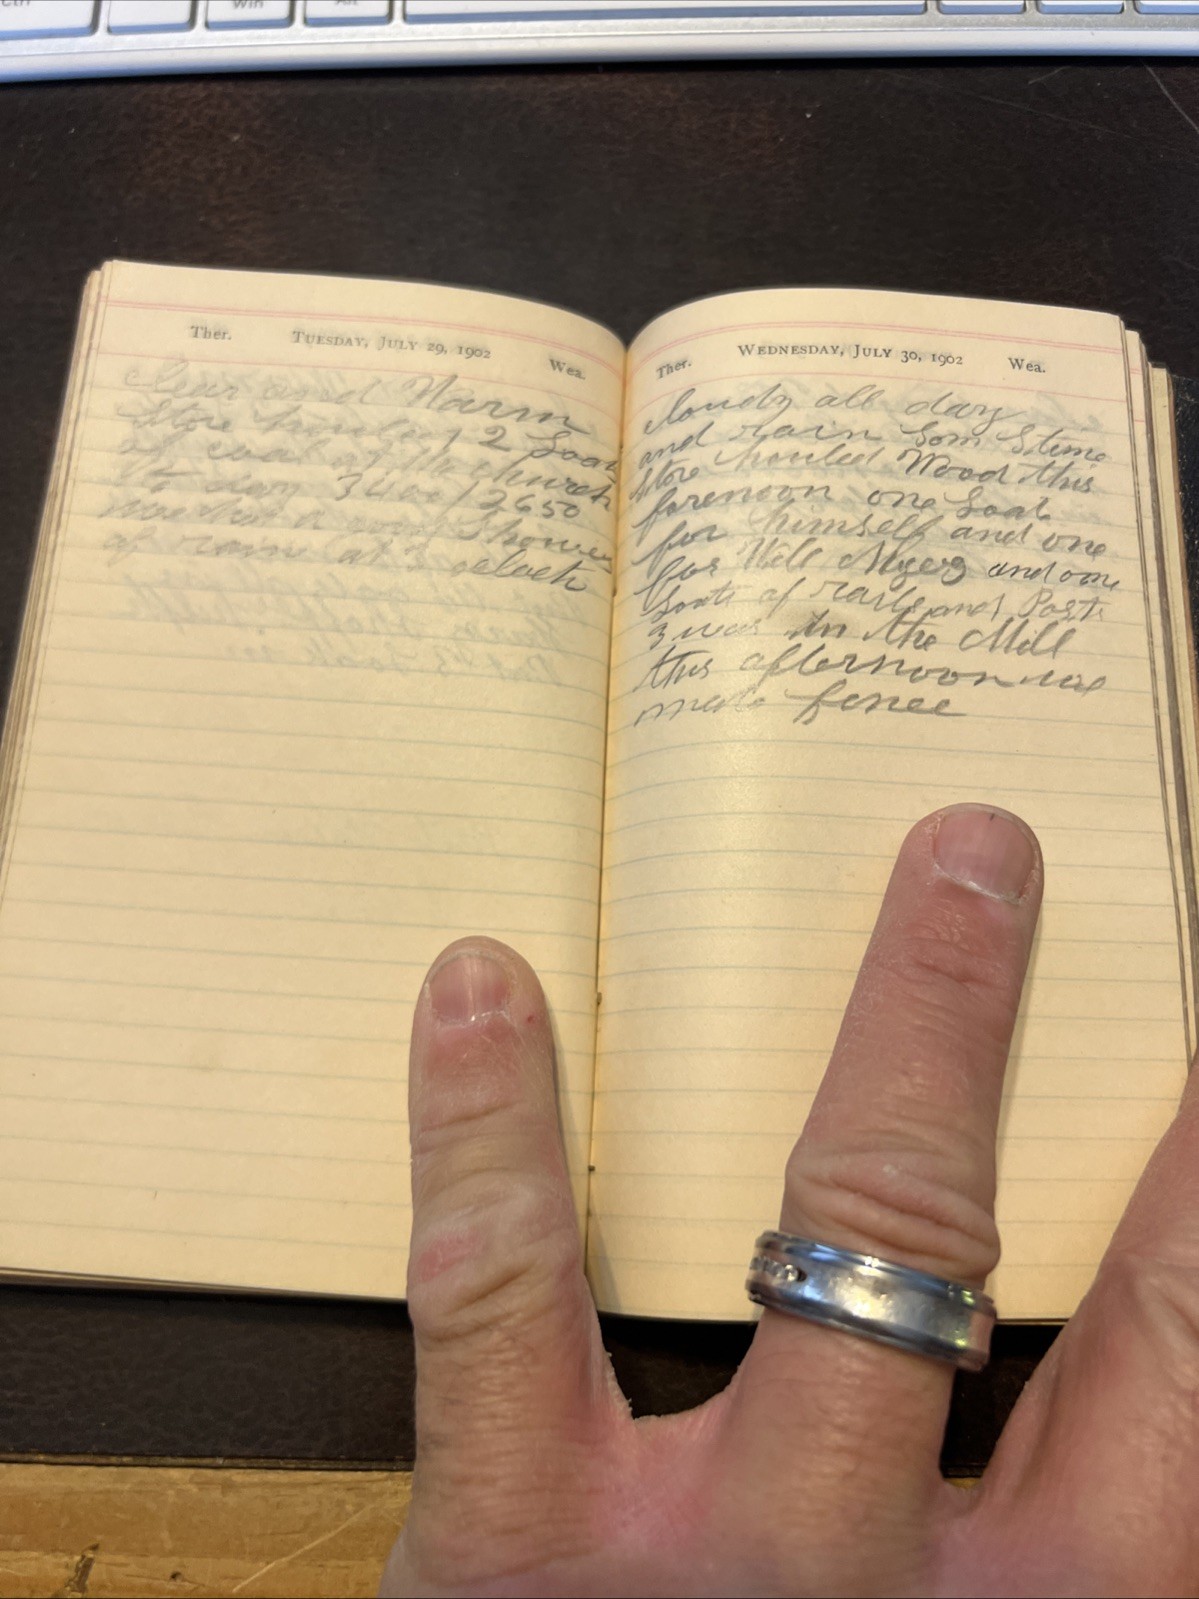 Ctrl
Win
Alt
Ther. TUESDAY, JULY 29, 1902 Wea.
clear and Warm
Store hauled 2 Load
of coal at the church
to day 3400 / 2650
we had a good Shower
of rain at 3 oclock
Ther. WEDNESDAY, JULY 30, 1902 Wea.
cloudy all day
and rain Som Stime
Store hauled Wood this
forenoon one Load
for himself and one
for Will Myers and one
Load of rails and Posts
I was in the Mill
this afternoon we
made fence